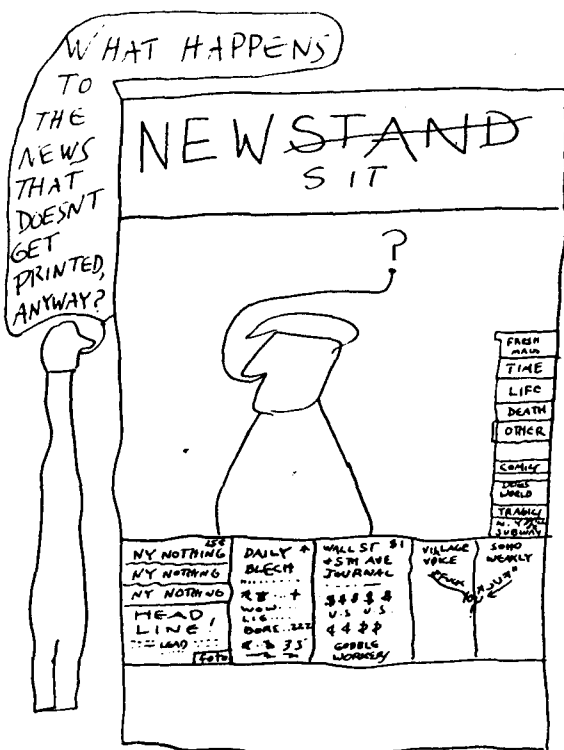 WHAT HAPPENS
TO
THE
NEWS
THAT
DOESNT
GET
PRINTED,
ANYWAY?
NEWSTAND
SIT
?
FRESH
TIME
LIFE
DEATH
OTHER
COMICS
DOGS
WORLD
TRAGIC
N.Y.
SUBWAY
25¢
NY NOTHING
NY NOTHING
NY NOTHING
HEAD
LINE!
LEAD
foto
DAILY
BLECH
WOW
LIE
BORE...222
35
WALL ST $1
+ 5TH AVE
JOURNAL
$ $ $ $ $
U.S U.S.
¢ ¢ $ $
GOBBLE
WORKERS
VILLAGE
VOICE
FUCK
SOHO
WEEKLY